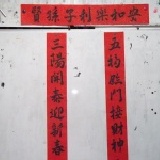 安和樂利子孫賢
五福臨門接財神
三陽開泰迎新春